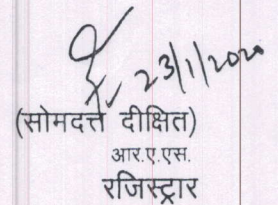 23/1/2020
(सोमदत्त दीक्षित)
आर.ए.एस.
रजिस्ट्रार